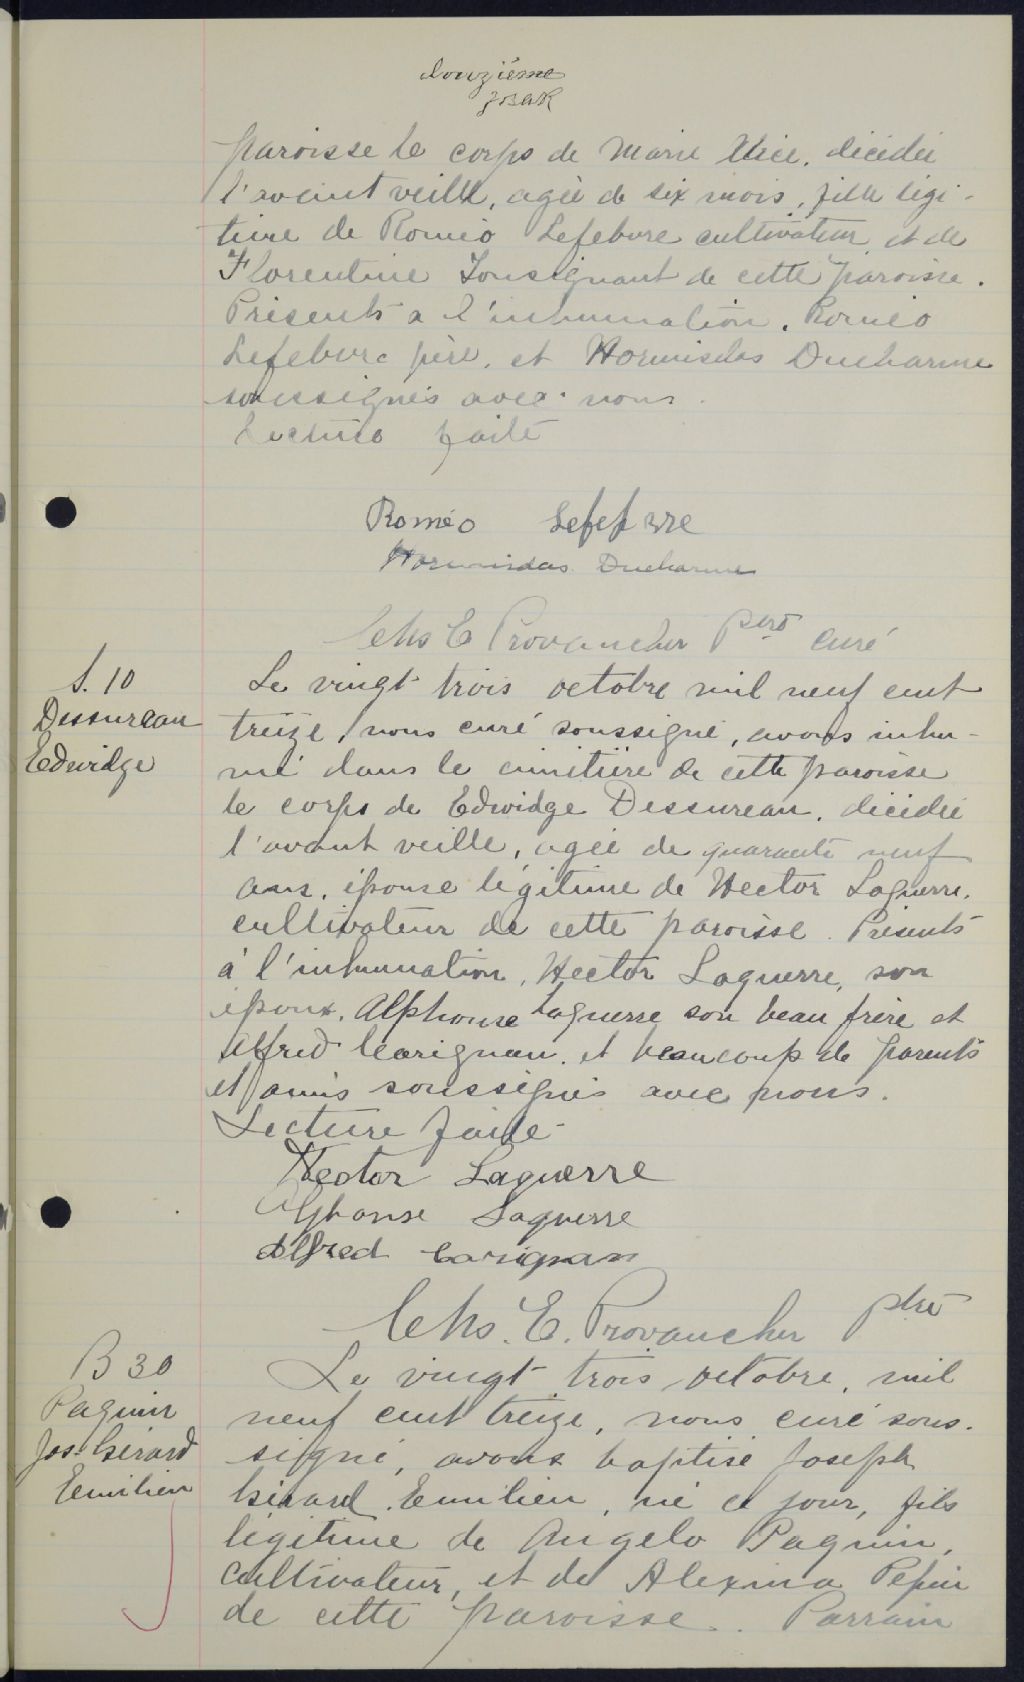 douzième
paroisse le corps de Marie Alice, décédée
l'avant veille, agée de six mois, fille légi-
time de Roméo Lefebvre cultivateur et de
Florentine Tousignant de cette paroisse.
Présents a l'inhumation, Roméo
Lefebvre père, et Hormisdas Ducharme
soussignés avec nous.
Lecture faite
Roméo Lefefbre
Hormisdas Ducharme
Chs E Provancher Ptre curé
S. 10
Dessureau
Edwidge
Le vingt trois octobre mil neuf cent
treize, nous curé soussigné, avons inhu-
mé dans le cimitière de cette paroisse
le corps de Edwidge Dessureau, décédée
l'avant veille, agée de quarante neuf
ans, épouse légitime de Hector Laguerre,
cultivateur de cette paroisse. Présents
à l'inhumation, Hector Laguerre, son
époux, Alphonse Laguerre son beau frère et
Alfred Carignan, et beaucoup de parents
et amis soussignés avec nous.
Lecture faite
Hector Laguerre
Alphonse Laguerre
Alfred Carignan
Chs. E. Provancher ptre
B 30
Paquin
Jos. Gérard
Emilien
Le vingt trois octobre, mil
neuf cent treize, nous curé sous-
signé, avons baptisé Joseph
Gérard Emilien, né ce jour, fils
légitime de Angelo Paquin,
cultivateur, et de Alexina Pepin
de cette paroisse. Parrain